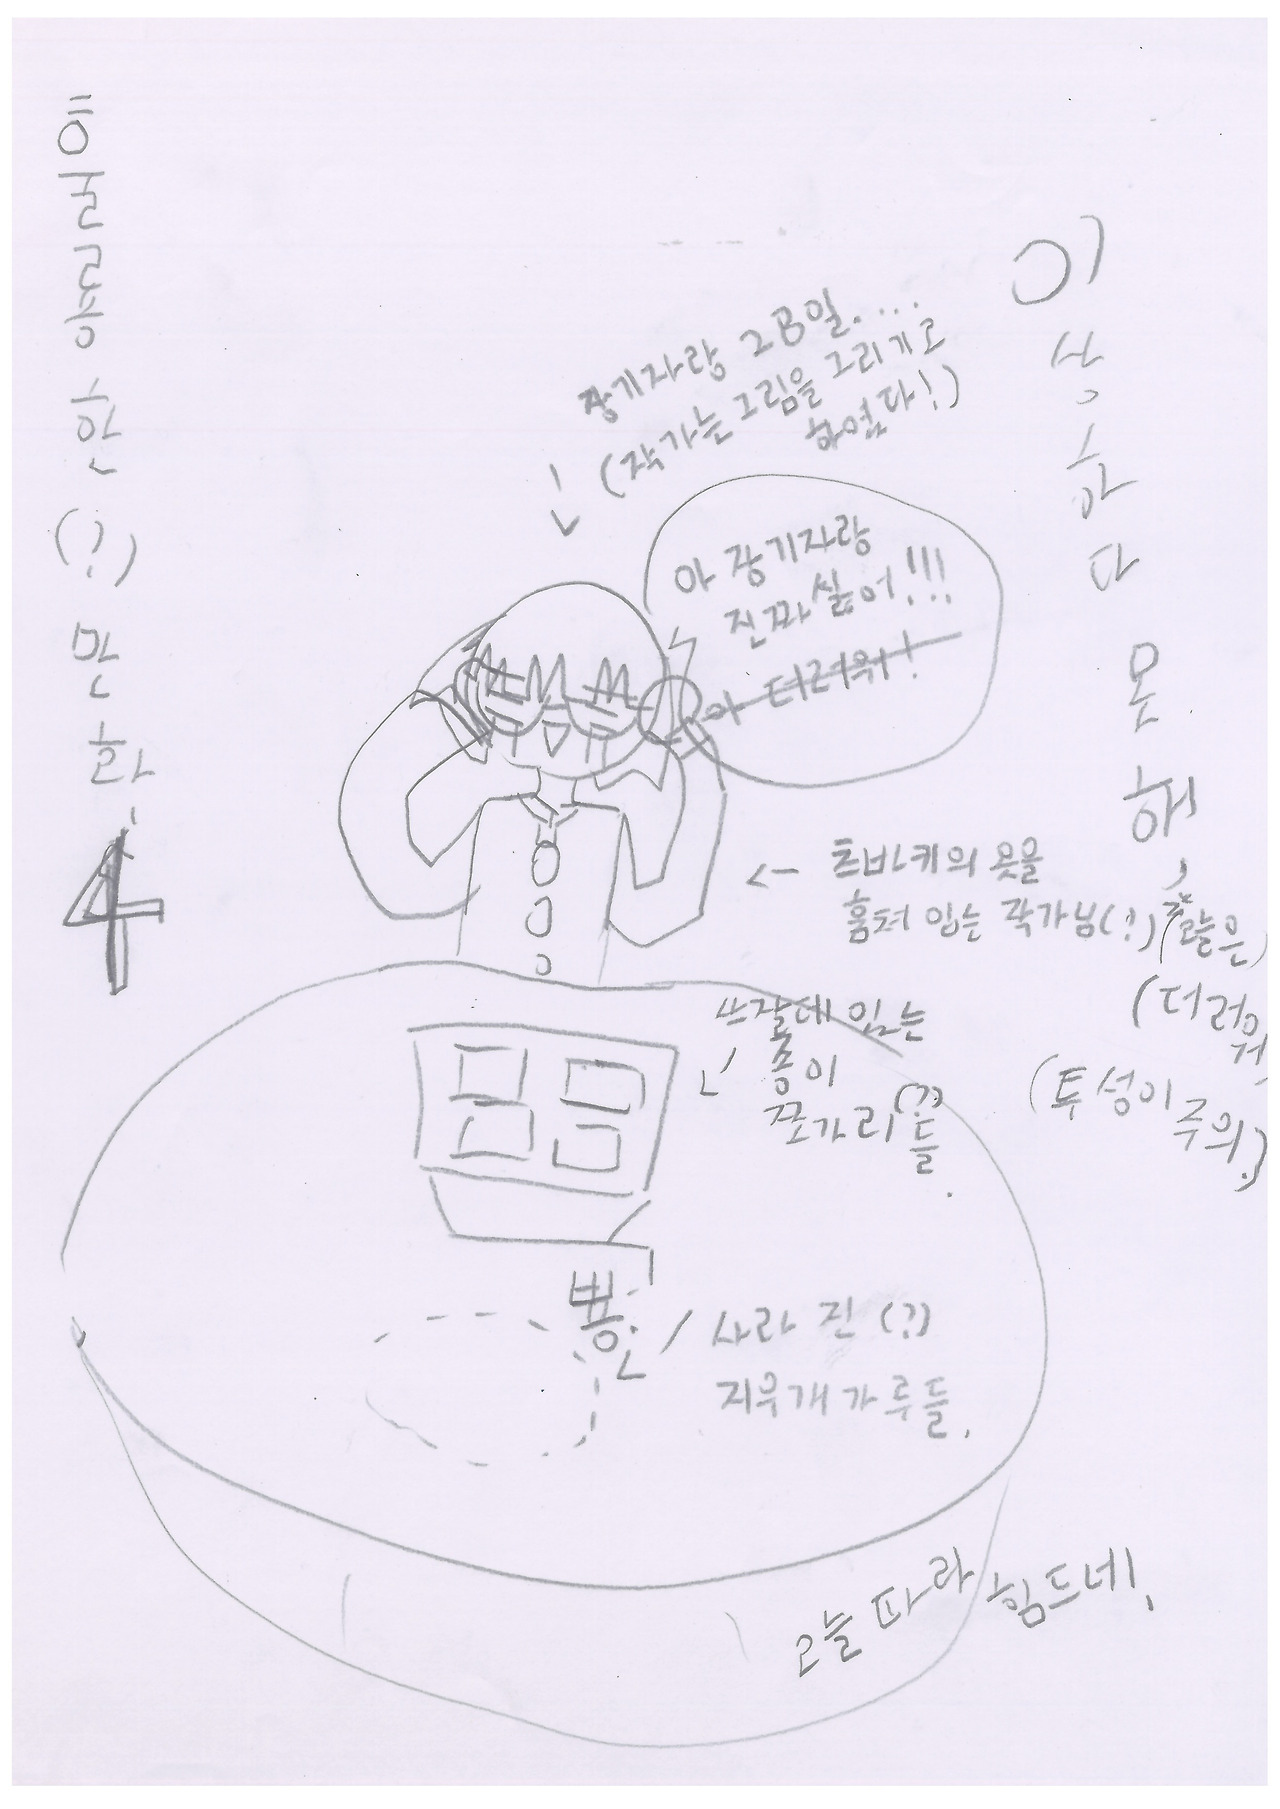 흐눌륭한(?) 만화
4
이상하다 못해,
장기자랑 그림일....
(작가는 그림을 그리기로
하였다!)
아 장기자랑
진짜 싫어!!!
아 더러워!
← 츠바키의 옷을
훔쳐 입는 작가님(?)
오늘은
(더러워,
(투성이 주의!)
쓰잘데 있는
종이
쪼가리(?)들.
뿅
사라진(?)
지우개 가루들.
오늘따라 힘드네!